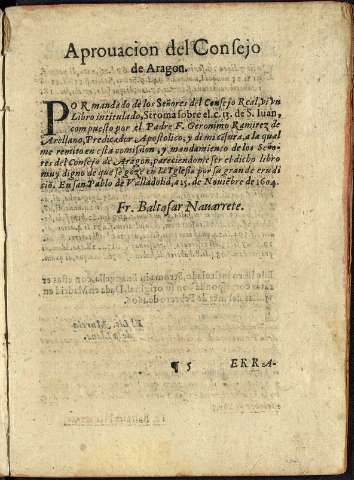 Aprouacion del Consejo
de Aragon.
POR mandado de los Señores del Consejo Real, vi vn
Libro intitulado, Stroma sobre el. c. 13. de S. Iuan,
compuesto por el Padre F. Geronimo Ramirez de
Arellano, Predicador Apostolico; y di mi cesura, a la qual
me remito en esta comission, y mandamiento de los Seño-
res del Consejo de Aragon, pareciendome ser el dicho libro
muy digno de que se goze en la Iglesia por su grande erudi
ciō. En san Pablo de Valladolid, a 25. de Nouiēbre de 1604.
Fr. Baltasar Nauarrete.
¶ 5
ERRA-